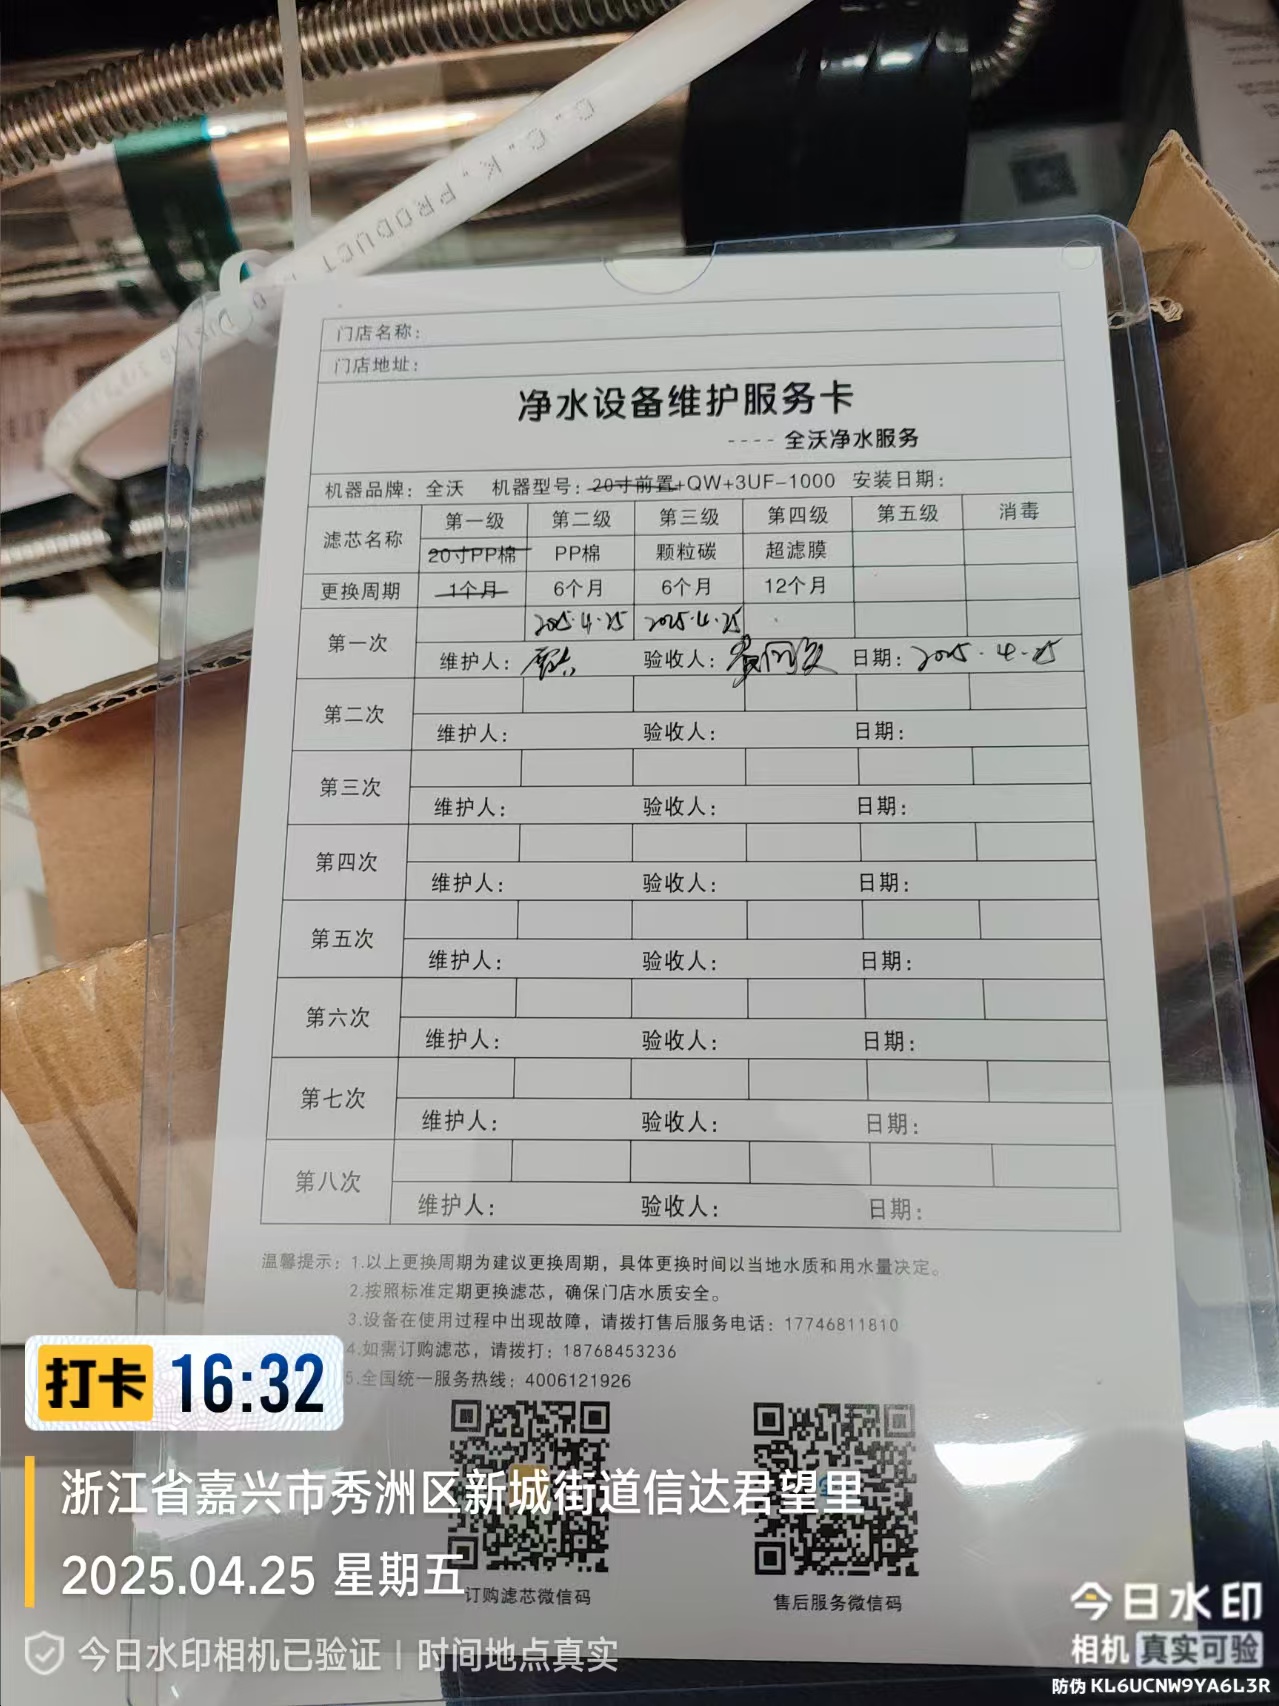 C.C.K.PRODUCT
门店名称：
门店地址：
净水设备维护服务卡
---- 全沃净水服务
机器品牌：全沃 机器型号：20寸前置+QW+3UF-1000 安装日期：
滤芯名称 第一级 第二级 第三级 第四级 第五级 消毒
20寸PP棉 PP棉 颗粒碳 超滤膜
更换周期 1个月 6个月 6个月 12个月
第一次 2025.4.25 2025.4.25
维护人： 验收人： 日期：2025.4.25
第二次
维护人： 验收人： 日期：
第三次
维护人： 验收人： 日期：
第四次
维护人： 验收人： 日期：
第五次
维护人： 验收人： 日期：
第六次
维护人： 验收人： 日期：
第七次
维护人： 验收人： 日期：
第八次
维护人： 验收人： 日期：
温馨提示：1.以上更换周期为建议更换周期，具体更换时间以当地水质和用水量决定。
2.按照标准定期更换滤芯，确保门店水质安全。
3.设备在使用过程中出现故障，请拨打售后服务电话：17746811810
4.如需订购滤芯，请拨打：18768453236
5.全国统一服务热线：4006121926
订购滤芯微信码
售后服务微信码
打卡 16:32
浙江省嘉兴市秀洲区新城街道信达君望里
2025.04.25 星期五
今日水印相机已验证 | 时间地点真实
今日水印
相机 真实可验
防伪 KL6UCNW9YA6L3R